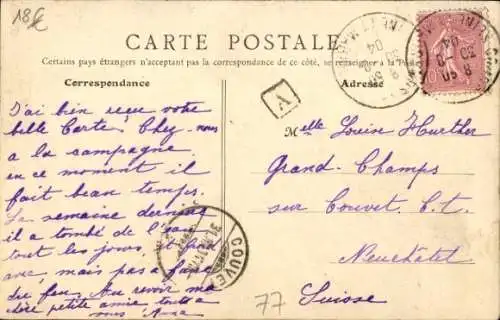 18€
CARTE POSTALE
Certains pays étrangers n'acceptant pas la correspondance de ce côté, se renseigner a la Poste
Correspondance
J'ai bien reçu votre
belle Carte. Chez nous
a la campagne
en ce moment il
fait beau temps.
La semaine dernière
il a tombé de l'eau
tout les jours, il
avec, mais pas a faire
du feu. Au revoir ma
chère petite amie toute a
vous Anna
A
Adresse
Melle Louise Hurther
Grand-Champs
sur Couvet C.t.
Neuchâtel
Suisse
COUVET
77